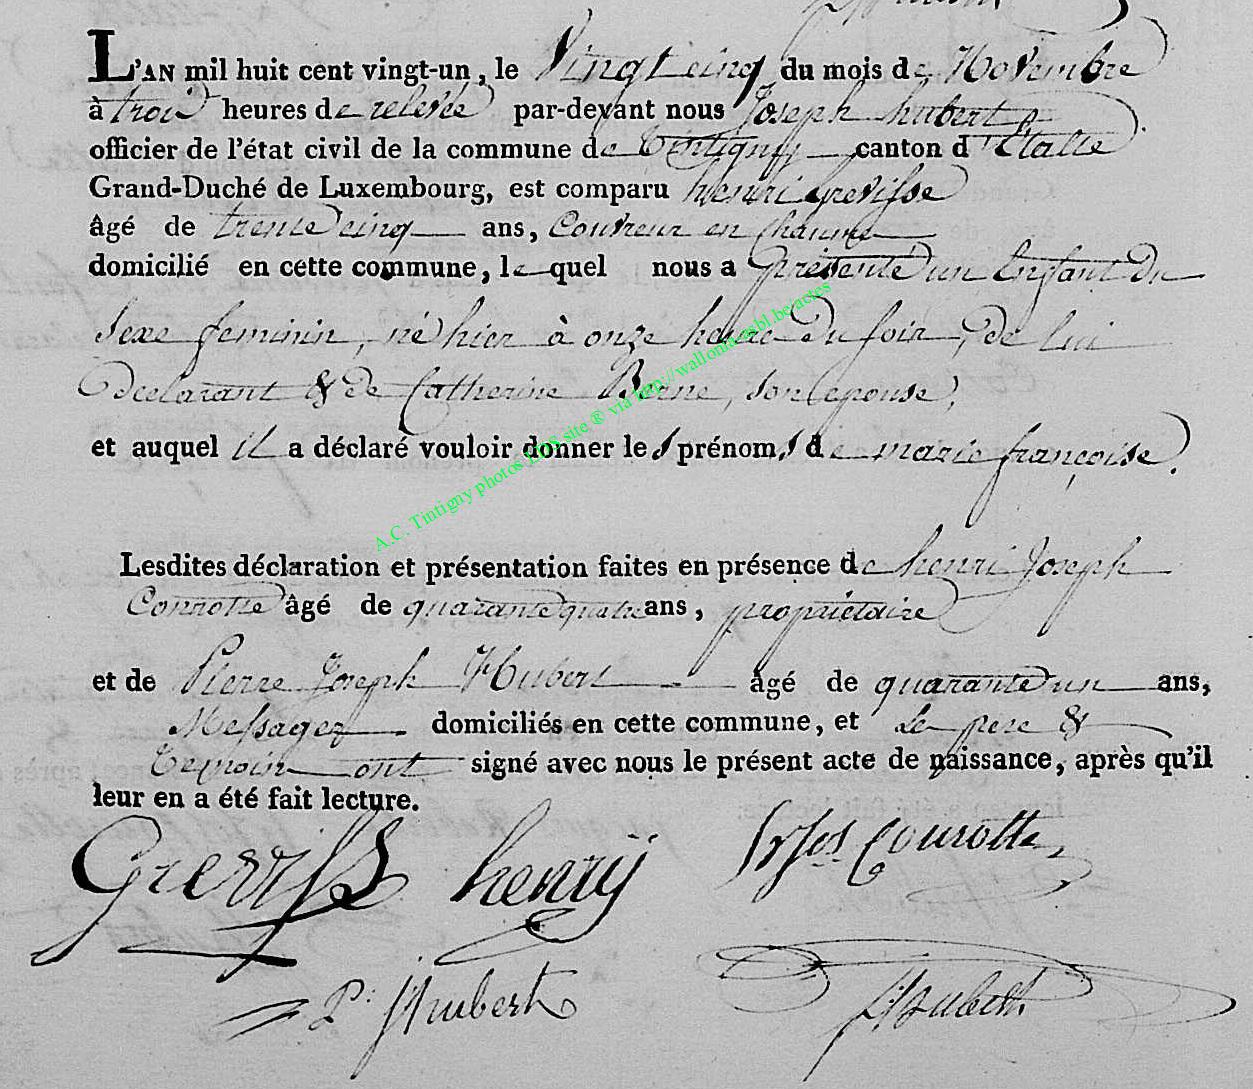 L'AN mil huit cent vingt-un, le Vingt cinq du mois de Novembre
à trois heures de relevée par-devant nous Joseph hubert
officier de l'état civil de la commune de Tintigny canton d'Etalle
Grand-Duché de Luxembourg, est comparu henri Grevisse
âgé de trente cinq ans, Couvreur en chaume
domicilié en cette commune, le quel nous a présenté un Enfant du
sexe feminin, né hier à onze heure du soir, de lui
declarant & de Catherine Berne, son epouse,
et auquel il a déclaré vouloir donner le s prénom s de marie françoise.
Lesdites déclaration et présentation faites en présence de henri Joseph
Conrotte âgé de quarante quatre ans, propriétaire
et de Pierre Joseph Hubert âgé de quarante un ans,
Messager domiciliés en cette commune, et le pere &
Temoin ont signé avec nous le présent acte de naissance, après qu'il
leur en a été fait lecture.
Grevisse henry
Conrotte
P: J Hubert
J Hubert
A.C. Tintigny photos EDS site ® via http://wallonia-asbl.be/actes